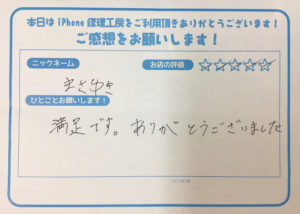 本日は iPhone 修理工房をご利用頂きありがとうございます！
ご感想をお願いします！
ニックネーム
お店の評価
☆☆☆☆☆
まさゆき
ひとことお願いします！
満足です。ありがとうございました